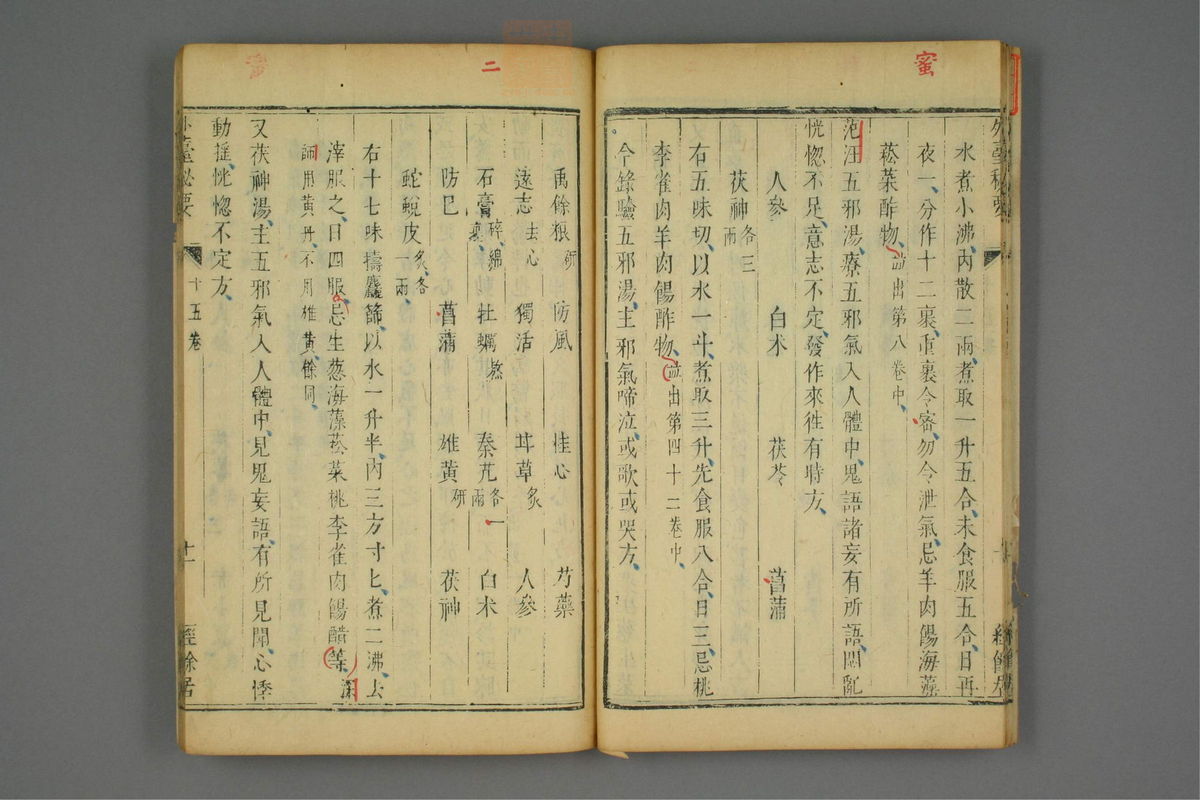 蜜
外臺秘要
水煮小沸內散二兩煮取一升五合未食服五合日再
夜一分作十二裹重裹令密勿令泄氣忌羊肉餳海藻
菘菜酢物並出第八卷中
范汪五邪湯療五邪氣入人體中鬼語諸妄有所語悶亂
恍惚不足意志不定發作來往有時方
人參 白朮 茯苓 菖蒲
茯神各三兩
右五味切以水一斗煮取三升先食服八合日三忌桃
李雀肉羊肉餳酢物並出第四十二卷中
今錄驗五邪湯主邪氣啼泣或歌或哭方
二
禹餘粮研 防風 桂心 芍藥
遠志去心 獨活 甘草炙 人參
石膏碎綿裹 牡蠣熬 秦艽各一兩 白朮
防巳 菖蒲 雄黃研 茯神
蛇蛻皮炙各一兩
右十七味擣麤篩以水一升半內三方寸匕煮二沸去
滓服之日四服忌生葱海藻菘菜桃李雀肉餳醋等深
師用黃丹不用雄黃餘同
又茯神湯主五邪氣入人體中見鬼妄語有所見聞心悸
動搖恍惚不定方
外臺秘要 十五卷 十一 經餘居